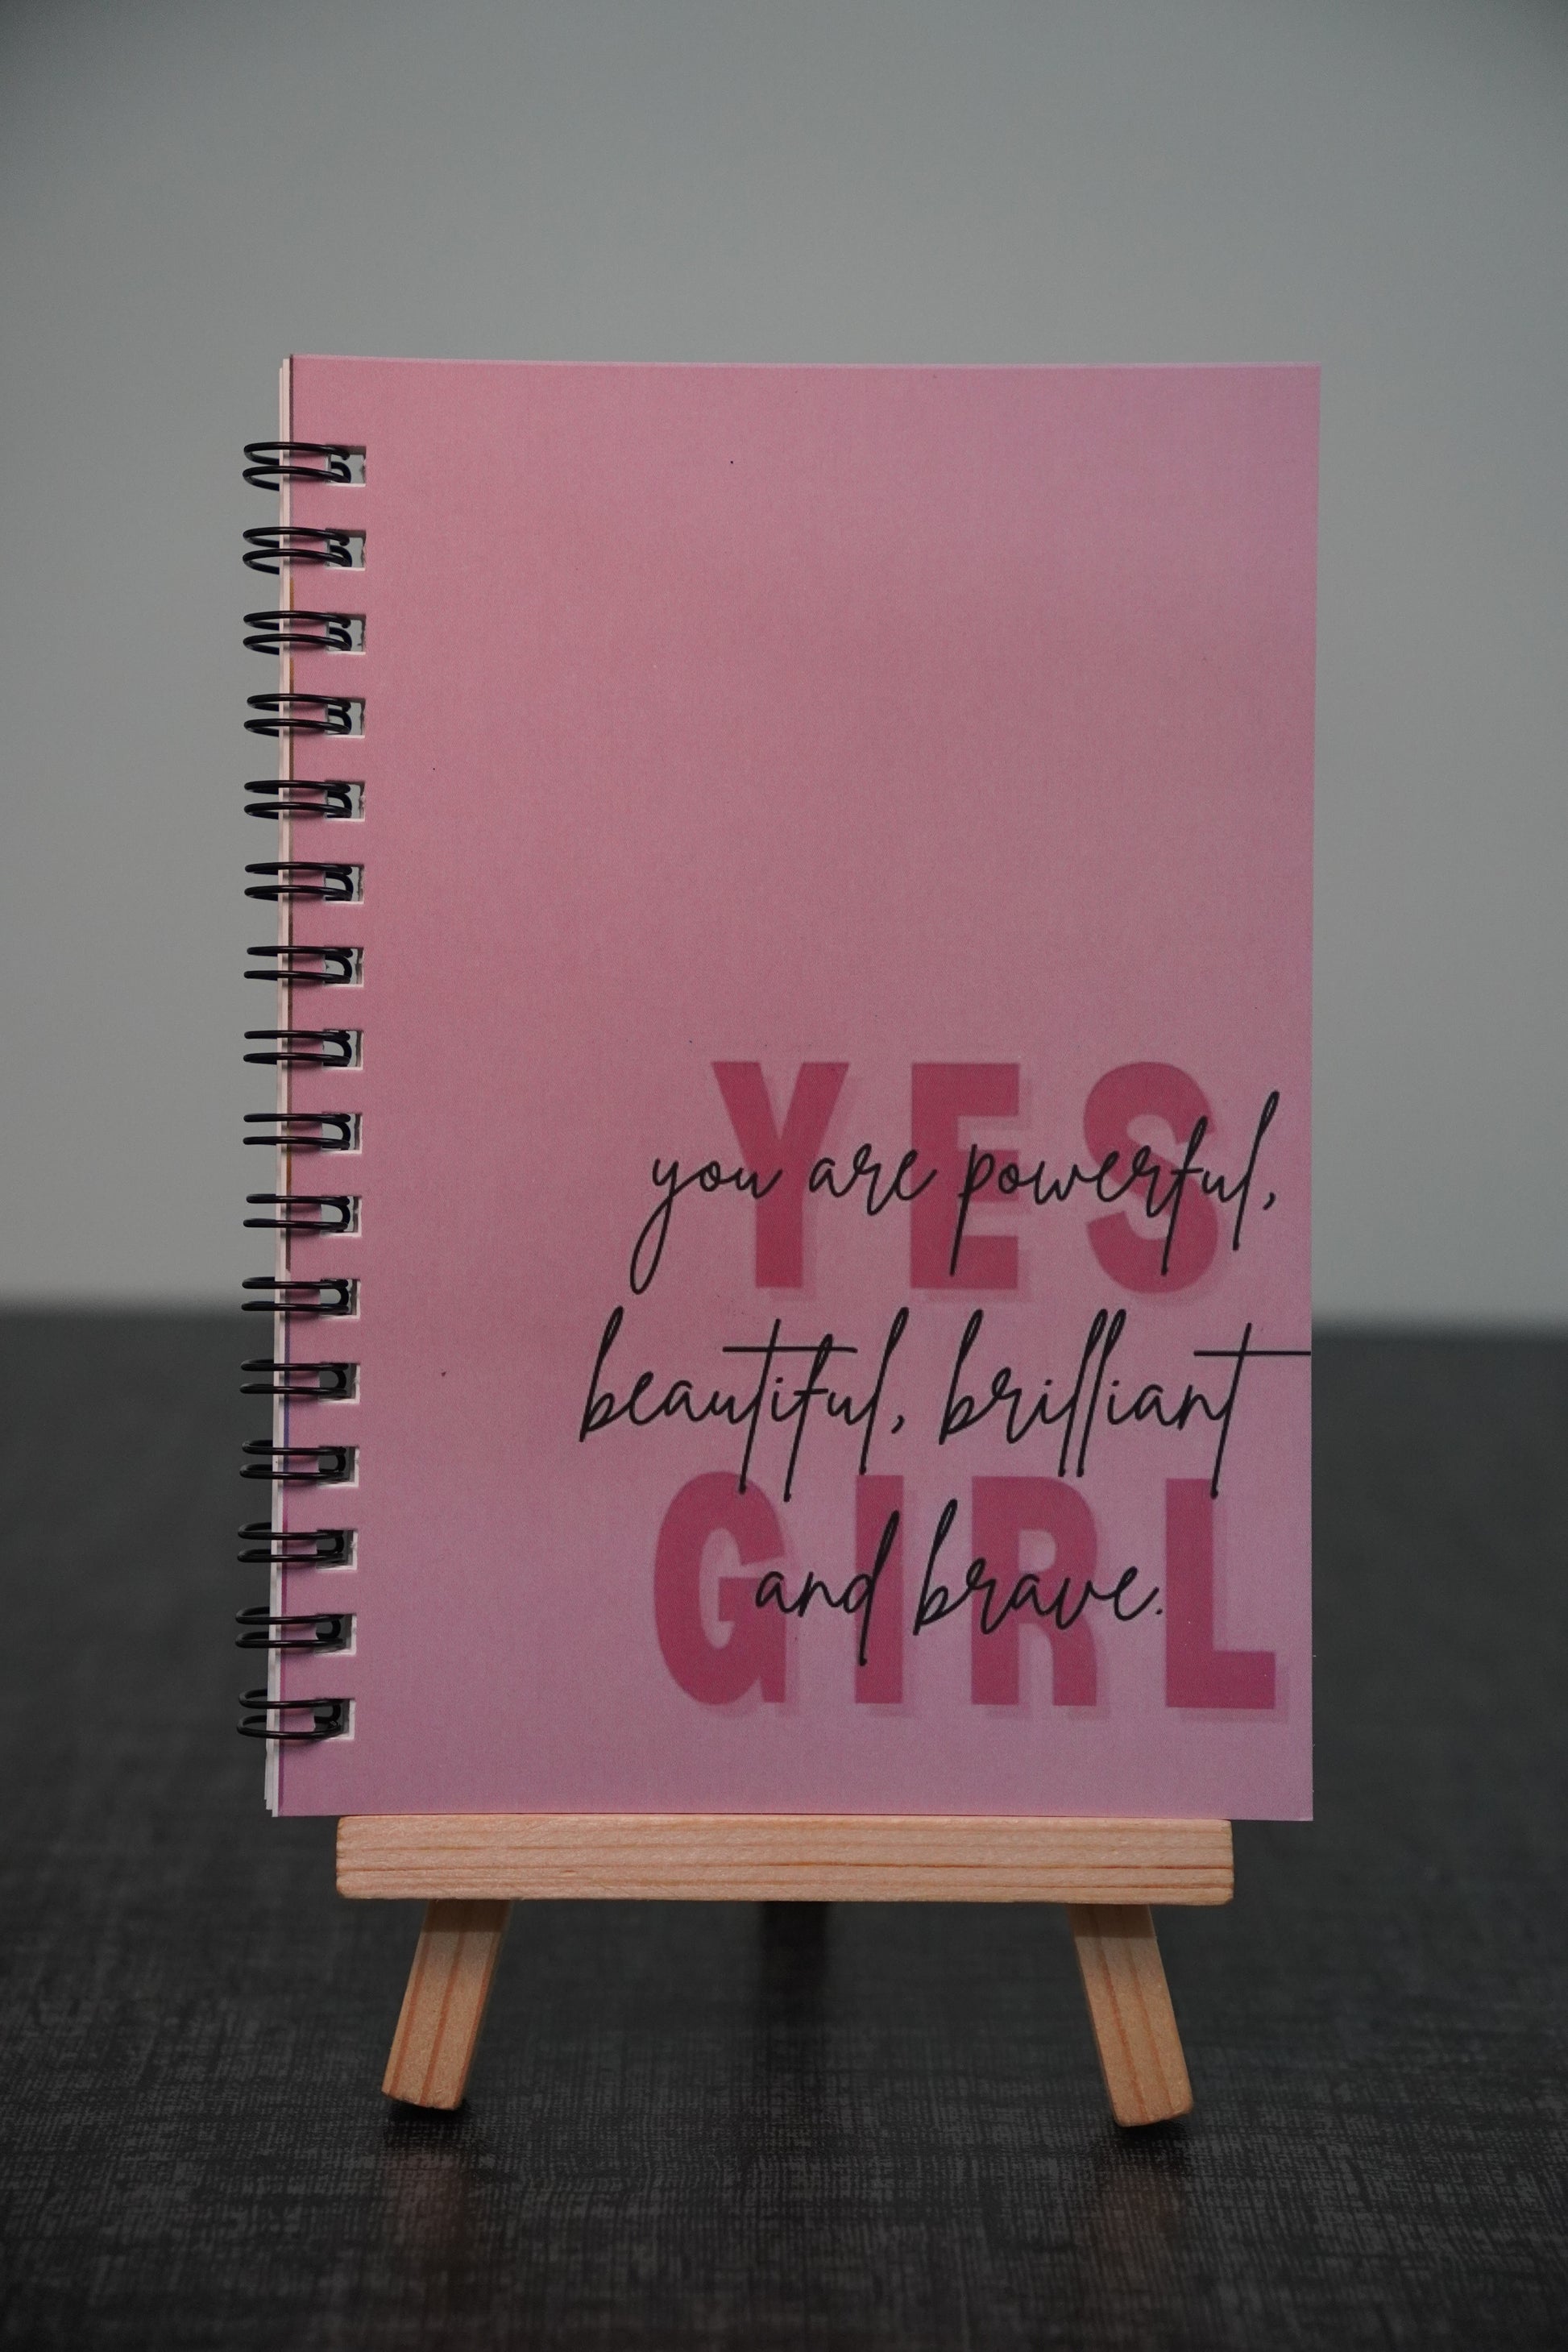 YES
you are powerful,
beautiful, brilliant
GIRL
and brave.